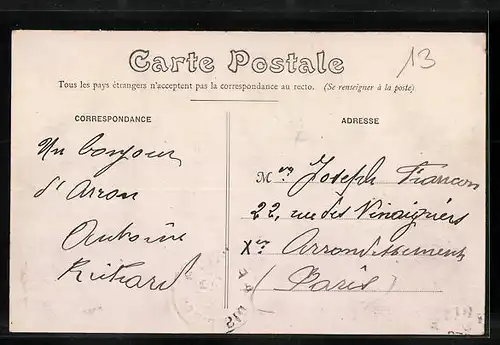 Carte Postale
13
Tous les pays étrangers n'acceptent pas la correspondance au recto. (Se renseigner à la poste)
CORRESPONDANCE
Un bonjour
d'Arron
Antoine
Richard
ADRESSE
Mr Joseph Francon
22, rue des Vinaigriers
Xe Arrondissement
(Paris)